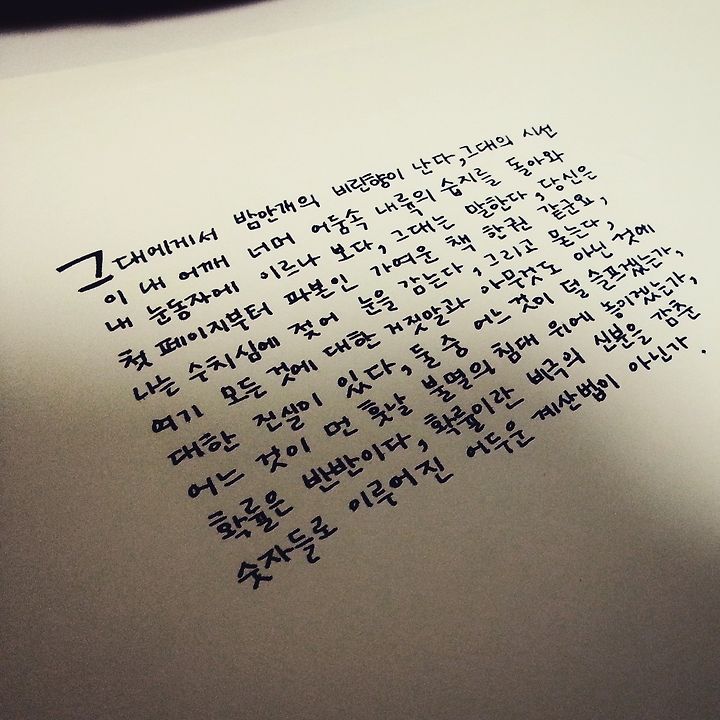 그대에게서 밤안개의 비린향이 난다, 그대의 시선
이 내 어깨 너머 어둠속 내륙의 습지를 돌아와
내 눈동자에 이르나 보다, 그대는 말한다, 당신은
첫 페이지부터 파본인 가여운 책 한권 같군요,
나는 수치심에 젖어 눈을 감는다, 그리고 묻는다,
여기 모든 것에 대한 거짓말과 아무것도 아닌 것에
대한 진실이 있다, 둘 중 어느 것이 덜 슬프겠는가,
어느 것이 먼 훗날 불멸의 침대 위에 놓이겠는가,
확률은 반반이다, 확률이란 비극의 신분을 감춘
숫자들로 이루어진 어두운 계산법이 아닌가.